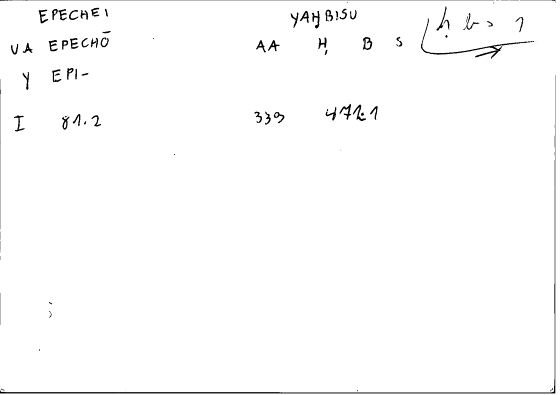 EPECHEI YAḤBISU
VA EPECHŌ AA Ḥ B S ḥ b s 1
Y EPI-
I 81.2 339 472.1